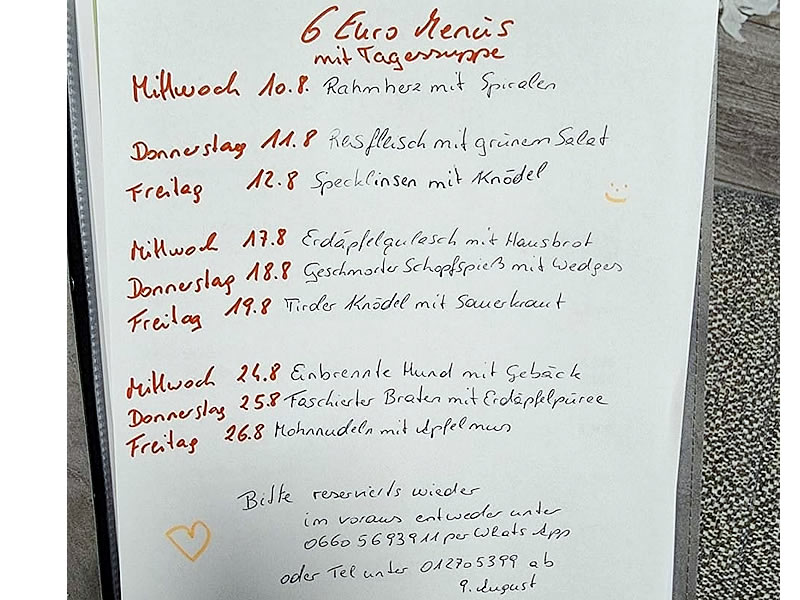 6 Euro Menüs
mit Tagessuppe
Mittwoch 10.8. Rahmherz mit Spiralen
Donnerstag 11.8 Reisfleisch mit grünem Salat
Freitag 12.8 Specklinsen mit Knödel
Mittwoch 17.8 Erdäpfelgulasch mit Hausbrot
Donnerstag 18.8 Geschmorter Schopfspieß mit Wedges
Freitag 19.8 Tiroler Knödel mit Sauerkraut
Mittwoch 24.8 Einbrennte Hund mit Gebäck
Donnerstag 25.8 Faschierter Braten mit Erdäpfelpüree
Freitag 26.8 Mohnnudeln mit Apfelmus
Bitte reservierts wieder
im voraus entweder unter
0660 5693911 per Whats App
oder Tel unter 012705399 ab
9. August